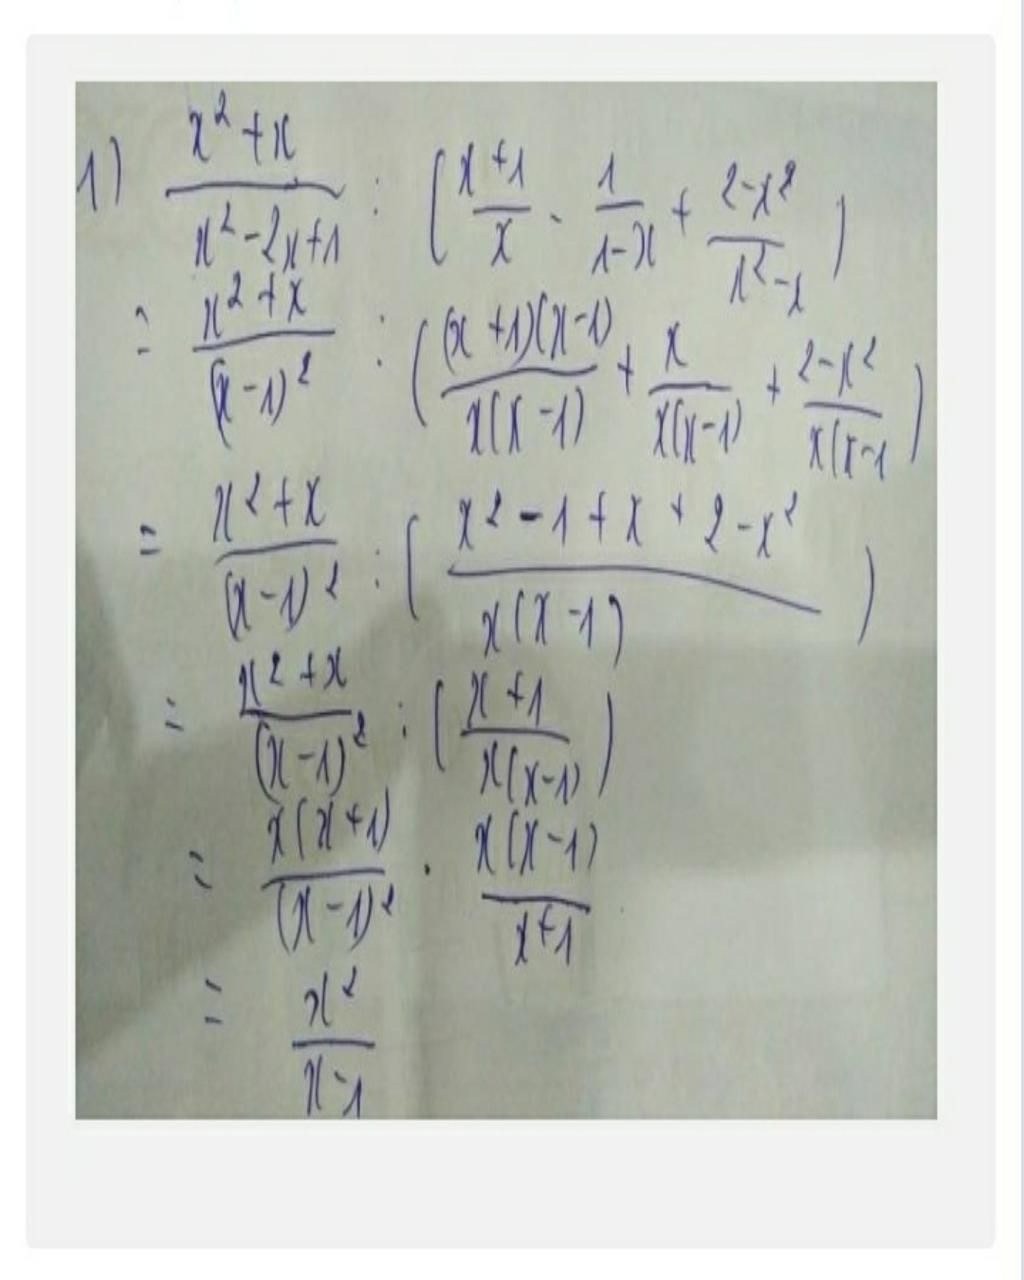 1) \frac{x^2+x}{x^2-2x+1} : (\frac{x+1}{x} - \frac{1}{1-x} + \frac{2-x^2}{x^2-x})
= \frac{x^2+x}{(x-1)^2} : (\frac{(x+1)(x-1)}{x(x-1)} + \frac{x}{x(x-1)} + \frac{2-x^2}{x(x-1})
= \frac{x^2+x}{(x-1)^2} : (\frac{x^2-1+x+2-x^2}{x(x-1)})
= \frac{x^2+x}{(x-1)^2} : (\frac{x+1}{x(x-1)})
= \frac{x(x+1)}{(x-1)^2} . \frac{x(x-1)}{x+1}
= \frac{x^2}{x-1}